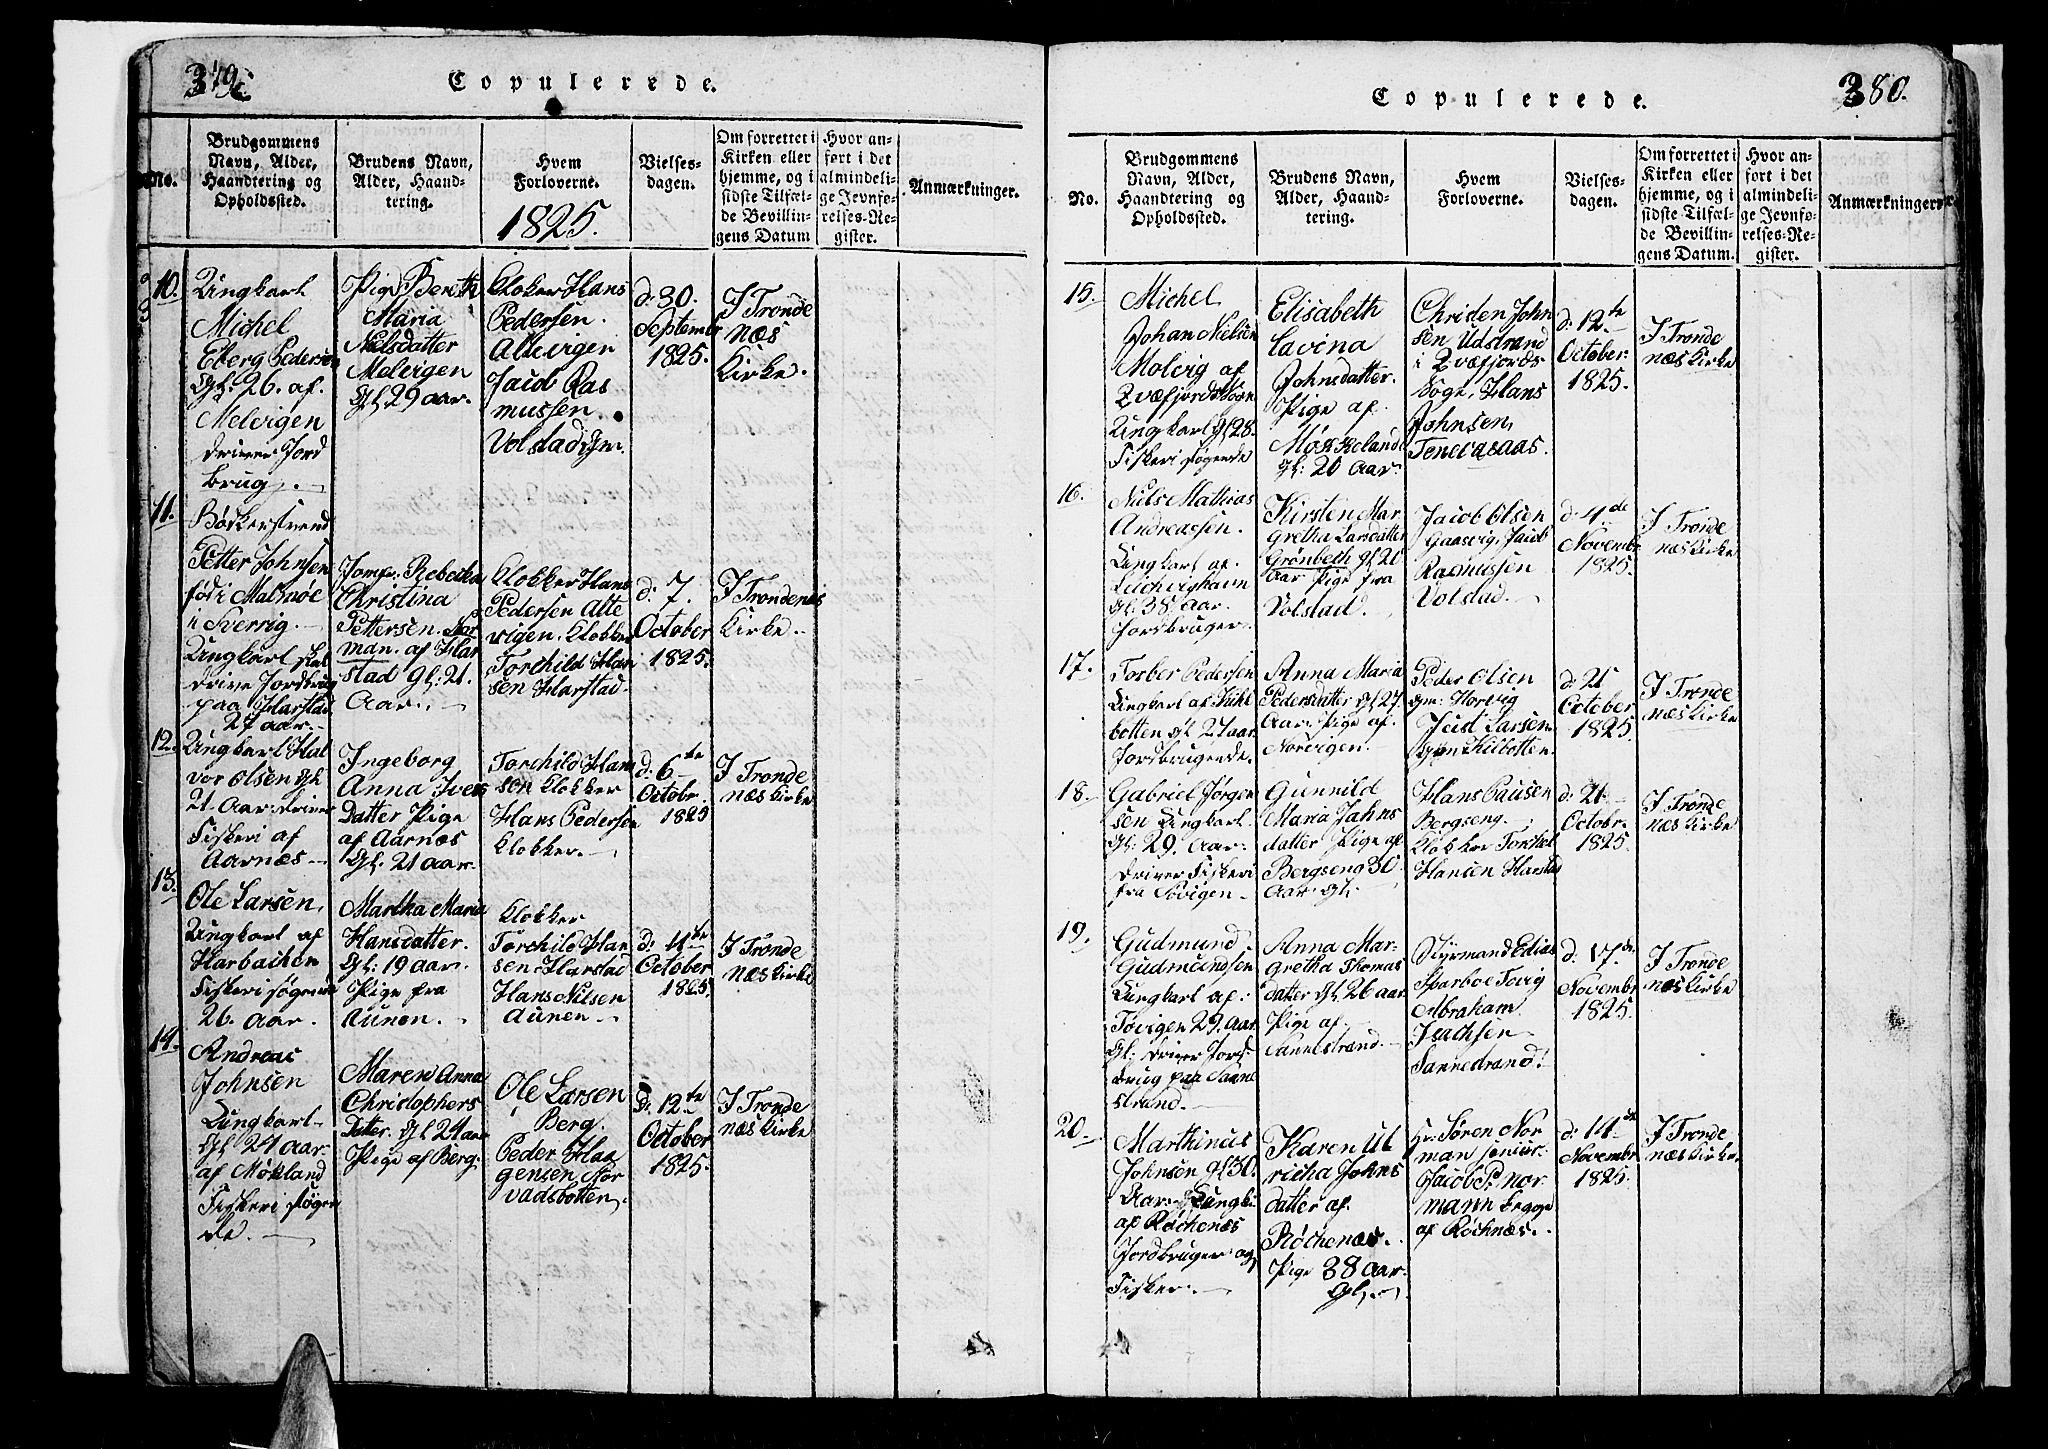 379.
Copulerede.
No.
Brudgommens
Navn, Alder,
Haandtering og
Opholdssted.
Brudens Navn,
Alder, Haand-
tering.
Hvem
Forloverne.
1825.
Vielses-
dagen.
Om forrettet i
Kirken eller
hjemme, og i
sidste Tilfæl-
de Bevillin-
gens Datum
Hvor an-
ført i det
almindeli-
ge Jevnfø-
relses-Re-
gister.
Anmærkninger.
10.
Ungkarl
Michel
Eberg Pedersen
Gl. 26. af.
Melvigen
driver Jord
brug.
Pige Bereth
Maria
Nielsdatter
Melvigen
Gl 29 aar.
Klokker Hans
Pedersen.
Altevigen
Jacob Ras
mussen
Volstad Gm.
d: 30.
September
1825.
I Tronde
næs
Kirke.
11.
Petter Johnsen
föd i Malmöe
i Sverrig.
Ungkarl skal
drive Jordbrug
paa Harstad
27 aar.
Jomfr. Rebecka
Christina
Pettersen. Nor
man. af Har
stad Gl: 21.
Aar.
Klokker Hans
Pedersen Alte
vigen. Klokker
Torchild Han
sen Harstad.
d: 7.
October
1825.
I Trondenæs
Kirke.
12.
Ungkarl Hal
vor Olsen Gl
21. Aar. driver
Fiskeri af
Aarnæs
Ingeborg
Anna Ivers
Datter Pige
af Aarnæs
Gl: 21 aar.
Torchild Han
sen Klokker
Hans Pedersen
Klokker.
d: 6te
Octobr.
1825
I Tronde
næs Kirke
13.
Ole Larsen.
Ungkarl af
Harbachen
Fiskeri søgende
26. Aar.
Martha Maria
Hansdatter.
Gl: 19 aar.
Pige fra
Aunen.
Klokker
Torchild Han
sen Harstad
Hans Nilsen
Aunen
d: 11te
October
1825.
I Tronde
næs Kirke
14.
Andreas
Johnsen
Ungkarl
Gl 24 aar.
af Mökland
Fiskeri søgen
de.
Maren Anna
Christophers
Dater. Gl 24 aar
Pige af Berg.
Ole Larsen
Berg.
Peder Haa
gensen Stor
vadsbotten.
D: 12te
October
1825.
I Tronde
næs Kirke
380.
Copulerede.
No.
Brudgommens
Navn, Alder,
Haandtering og
Opholdssted.
Brudens Navn,
Alder, Haand-
tering.
Hvem
Forloverne.
Vielses-
dagen.
Om forrettet i
Kirken eller
hjemme, og i
sidste Tilfæl-
de Bevillin-
gens Datum.
Hvor an-
ført i det
almindeli-
ge Jevnfø-
relses-Re-
gister.
Anmærkninger.
15.
Michel
Johan Nielsen
Molvig af
Qvæfjords Sogn
Ungkarl Gl 28.
Fiskeri søgende
Elisabeth
Lavina
Johnsdatter.
Pige af.
Möckeland
Gl: 20 Aar.
Christen John
sen Udstrand
i Qvæfjords
Sogn. Hans
Johnsen,
Tenevasaas.
d: 12te
October
1825.
I Tronde
næs Kirke
16.
Niels Mathias
Andreassen.
Ungkarl af.
Gl: 38. Aar.
Jordbruger.
Kirsten Mar
gretha Larsdatter
Grönbech Gl 20
Aar Pige fra
Volstad.
Jacob Olsen
Gaasvig, Jacob
Rasmussen
Volstad.
d: 4de
Novembr
1825.
I Tronde
næs Kirke
17.
Torber Pedersen
Ungkarl af Kihl
botten Gl 27 aar.
Jordbrugende.
Anna Maria
Pedersdatter Gl 27.
Aar. Pige af.
Norvigen.
Peder Olsen
Gm: Norvig
Larsen
Gm Kilbotten.
d: 21
October
1825.
I Tronde
næs Kirke
18.
Gabriel Jörgen
sen Ungkarl.
Gl: 29. Aar.
driver Fiskeri
fra Tövigen
Gunnild
Maria Jahns
datter Pige af
Bergseng 30
Aar Gl.
Hans Pausen
Bergseng.
Klokker Torkel
Hansen Harstad
d: 21.
Octobr.
1825.
I Tronde
næs Kirke
19.
Gudmund
Gudmundsen
Ungkarl af:
Tövigen 29. Aar
Gl: driver Jord
brug paa Sanne
strand.
Anna Mar-
gretha Thomas
datter Gl 26 aar
Pige af.
Sannestrand.
Styrmand Edias
Sparboe Tovig
Abraham
Isachsen
Sannestrand.
d: 17de
Novembr
1825.
I Tronde
næs Kirke
20.
Marthinus
Johnsen Gl 30.
Aar. Ungk:
af Röckenæs
Jordbruger og
Fisker.
Karen Ul
richa Johns
datter af.
Röckenæs.
Pige 38 Aar.
Gl.
Hr: Sören Nor
man senior.
Jacob P: Nor
mann begge
af Röchnæs.
d: 14de
Novembr
1825.
I Tronde
næs Kirke.